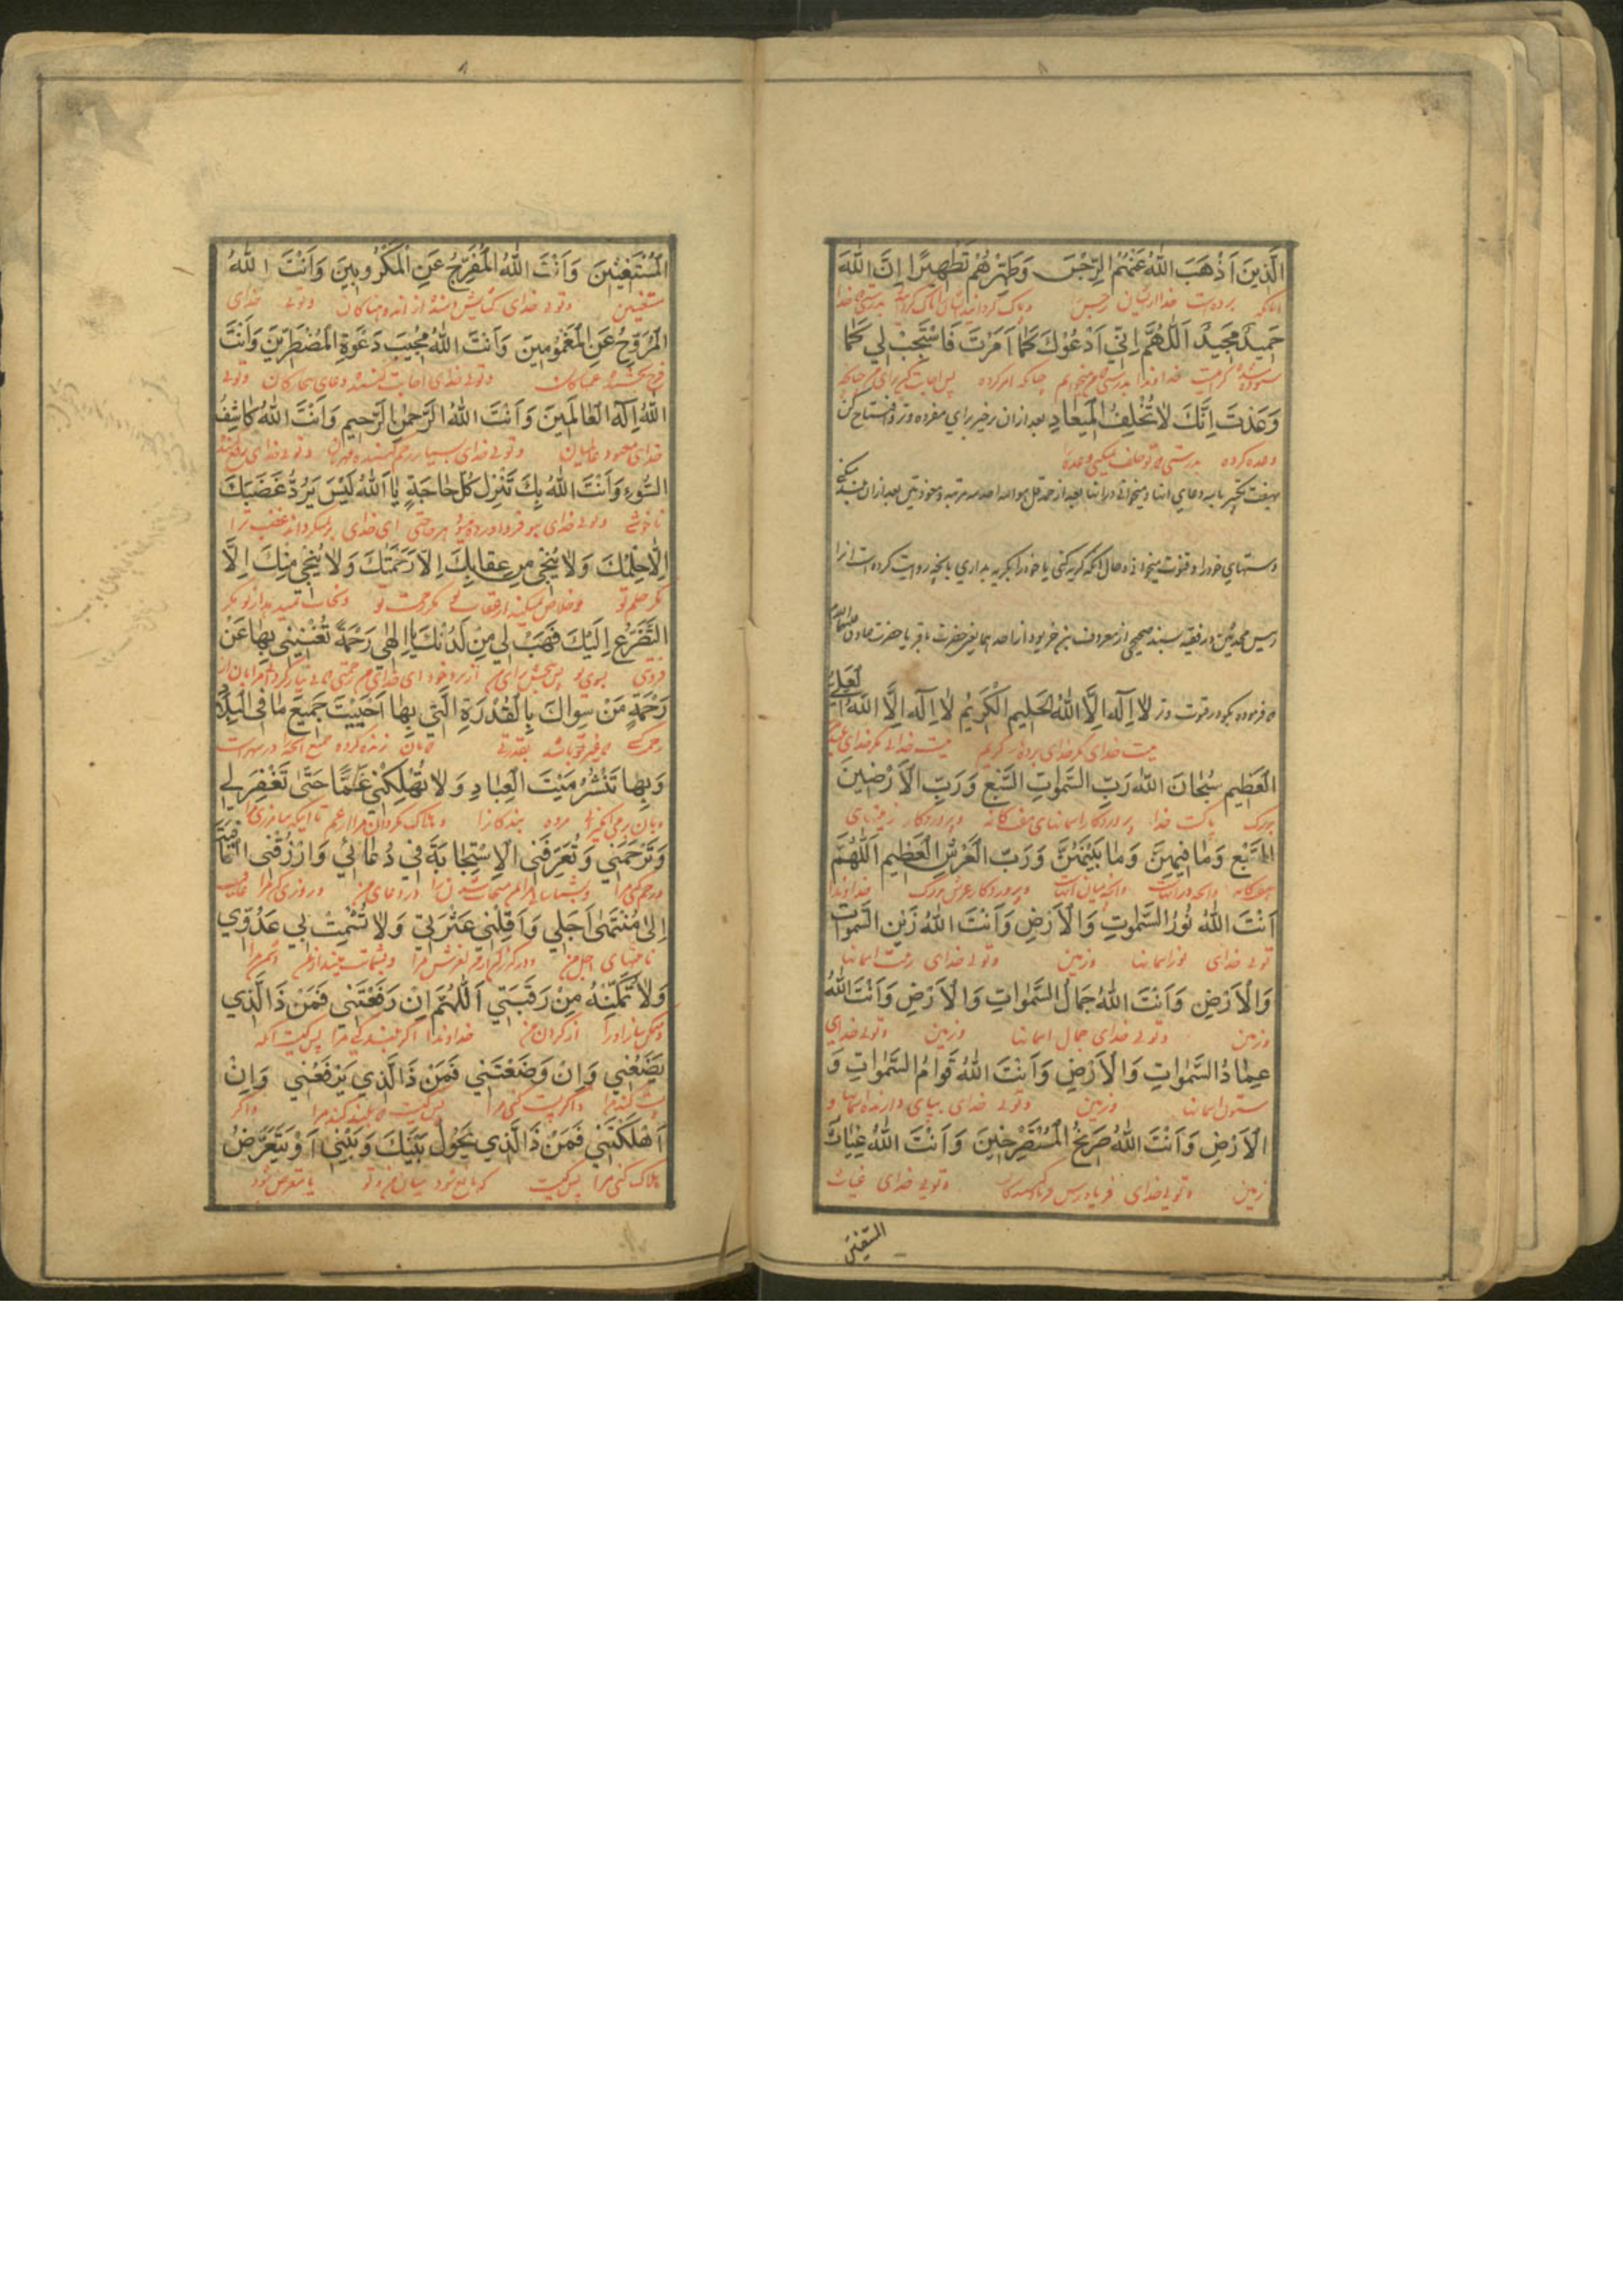 ٨
الَّذِينَ اَذْهَبَ اللهُ عَنْهُمُ الرِّجْسَ وَطَهَّرَهُمْ تَطْهِيرًا اِنَّ اللهَ
حَمِيدٌ مَجِيدٌ اَللّٰهُمَّ اِنّي اَدْعُوْكَ كَمٰا اَمَرْتَ فَاسْتَجِبْ لي كَمٰا
خداوندا بدرستی که میخوانم چنانکه امر کرده پس اجابت کن برای من چنانکه
وَعَدْتَ اِنَّكَ لٰا تُخْلِفُ الْمِيعٰادِ بعد ازان برخیز برای مفرده وتر و افتتاح کن
وعده کرده بدرستی که تو خلف نمیکنی وعده را
بهفت تکبیر با سه دعای اثنا و میخوانی در اثنا بعد از حمد قل هو الله احد سه مرتبه و معوذتین بعد ازان بلند میکنی
دستهای خود را و قنوت میخوانی در حال آنکه گریه کنی یا خود را بگریه بداری بانچه روایت کرده است انرا
در فقیه بسند صحیح از معروف بن خربوذ از احدهما یعنی حضرت باقر یا حضرت صادق علیهما السلام
که فرموده بگو در قنوت وتر لٰا اِلٰهَ اِلَّا اللهُ الْحَلِيمُ الْكَرِيمُ لٰا اِلٰهَ اِلَّا اللهُ الْعَلِيُّ
نیست خدای مگر خدای بردبار کریم نیست خدائی مگر خدای
الْعَظِيمِ سُبْحٰانَ اللهِ رَبِّ السَّمٰوٰاتِ السَّبْعِ وَرَبِّ الْاَرَضِينَ
بزرگ پاکست خدا پروردگار اسمانهای هفتگانه و پروردگار زمینهای
السَّبْعِ وَمٰا فِيهِنَّ وَمٰا بَيْنَهُنَّ وَرَبِّ الْعَرْشِ الْعَظِيمِ اَللّٰهُمَّ
هفتگانه وانچه در انهاست وانچه میان انهاست و پروردگار عرش بزرگ خداوندا
اَنْتَ اللهُ نُورُ السَّمٰوٰاتِ وَالْاَرْضِ وَاَنْتَ اللهُ زَيْنُ السَّمٰوٰاتِ
توئی خدای نور اسمانها وزمین وتوئی خدای زینت اسمانها
وَالْاَرْضِ وَاَنْتَ اللهُ جَمٰالُ السَّمٰوٰاتِ وَالْاَرْضِ وَاَنْتَ اللهُ
وزمین وتوئی خدای جمال اسمانها وزمین وتوئی خدای
عِمٰادُ السَّمٰوٰاتِ وَالْاَرْضِ وَاَنْتَ اللهُ قَوٰامُ السَّمٰوٰاتِ وَ
ستون اسمانها وزمین وتوئی خدای بپای دارنده اسمانها و
الْاَرْضِ وَاَنْتَ اللهُ صَرِيخُ الْمُسْتَصْرِخِينَ وَاَنْتَ اللهُ غِيٰاثُ
زمین وتوئی خدای فریادرس وتوئی خدای غیاث
المستغیثین
٨
الْمُسْتَغِيثِينَ وَاَنْتَ اللهُ الْمُفَرِّجُ عَنِ الْمَكْرُوبِينَ وَاَنْتَ اللهُ
مستغیثین وتوئی خدای گشایش دهنده از اندوهناکان وتوئی خدای
الْمُرَوِّحُ عَنِ الْمَغْمُومِينَ وَاَنْتَ اللهُ مُجِيبُ دَعْوَةِ الْمُضْطَرِّينَ وَاَنْتَ
وتوئی خدای اجابت کننده دعای بیچارکان وتوئی
اللهُ اِلٰهَ الْعٰالَمِينَ وَاَنْتَ اللهُ الرَّحْمٰنُ الرَّحِيمِ وَاَنْتَ اللهُ كٰاشِفُ
خدای معبود عالمیان وتوئی خدای بسیار رحم کننده مهربان وتوئی خدای
السُّوءِ وَاَنْتَ اللهُ بِكَ تُنْزَلُ كُلُّ حٰاجَةٍ يٰا اَللهُ لَيْسَ يَرُدُّ غَضَبَكَ
ناخوشی وتوئی خدای بتو فرود اورده میشود هر حاجتی ای خدای برنمیگرداند غضب ترا
اِلّٰا حِلْمُكَ وَلٰا يُنْجٰي مِنْ عِقٰابِكَ اِلّٰا رَحْمَتُكَ وَلٰا يُنْجٰي مِنْكَ اِلَّا
مگر حلم تو وخلاص نمیکند از عقاب تو مگر رحمت تو ونجات نمیدهد از تو مگر
التَّضَرُّعُ اِلَيْكَ فَهَبْ لي مِنْ لَدُنْكَ يٰا اِلٰهي رَحْمَةً تُغْنِيني بِهٰا عَنْ
بسوی تو پس ببخش برای من از نزد خود ای خدای من رحمتی که بی نیاز گردانی مرا بان از
رَحْمَةِ مَنْ سِوٰاكَ بِالْقُدْرَةِ الَّتي بِهٰا اَحْيَيْتَ جَميعَ مٰا فِي الْبِلٰادِ
که غیر تو باشد بقدرتی که بان زنده کرده جمیع انچه در شهرهاست
وَبِهٰا تَنْشُرُ مَيْتَ الْعِبٰادِ وَلٰا تُهْلِكْني غَمًّا حَتّٰى تَغْفِرَ لي
وبان برمی انگیزی مرده بندگانرا وهلاک مگردان مرا از غم تا اینکه بیامرزی مرا
وَتَرْحَمَني وَتُعَرِّفَني الْاِسْتِجٰابَةَ في دُعٰائي وَارْزُقْنِي الْعٰافِيَةَ
ورحم کنی مرا در دعای من وروزی کن مرا عافیت
اِلٰى مُنْتَهٰى اَجَلي وَاَقِلْني عَثْرَتي وَلٰا تُشْمِتْ بي عَدُوّي
تا منتهای اجل من ودر گذر لغزش مرا دشمن مرا
وَلٰا تُمَكِّنْهُ مِنْ رَقَبَتي اَللّٰهُمَّ اِنْ رَفَعْتَني فَمَنْ ذَا الَّذي
ومتمکن مساز او را از گردن من خداوندا اگر بلند کنی مرا پس کیست انکه
يَضَعُني وَاِنْ وَضَعْتَني فَمَنْ ذَا الَّذي يَرْفَعُني وَاِنْ
پست کند مرا واگر پست کنی مرا پس کیست که بلند کند مرا واگر
اَهْلَكْتَني فَمَنْ ذَا الَّذي يَحُولُ بَيْنَكَ وَبَيْني اَوْ يَتَعَرَّضُ
هلاک کنی مرا پس کیست که مانع شود میان من وتو یا متعرض شود